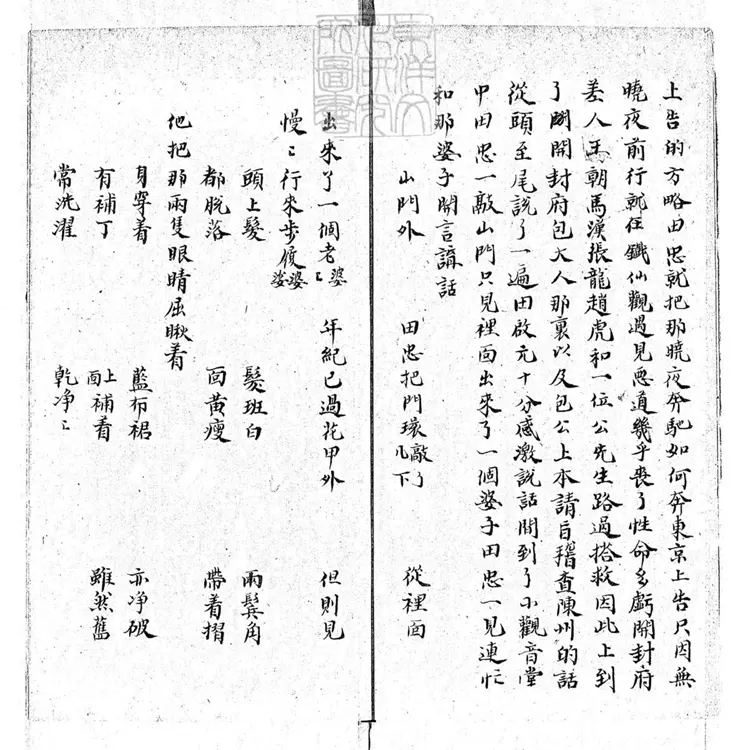 東洋文
化研究
所圖書
上告的方略田忠就把那曉夜奔馳如何奔東京上告只因無
曉夜前行就在鐵仙觀遇見惡道幾乎喪了性命多虧開封府
差人王朝馬漢張龍趙虎和一位公先生路過搭救因此上到
了開封府包大人那裏以及包公上本請旨稽查陳州的話
從頭至尾說了一遍田啟元十分感激說話間到了小觀音堂
中田忠一敲山門只見裡面出來了一個婆子田忠一見連忙
和那婆子開言講話
山門外 田忠把門環敲了几下 從裡面
出來了一個老婆〻 年紀已過花甲外 但則見
慢〻行來步履婆娑
頭上髮 髮班白 兩鬓角
都脫落 面黃瘦 帶着摺
他把那兩隻眼睛屈瞅着
身穿着 藍布裙 亦净破
有補丁 上面補着 雖然舊
常洗濯 乾净〻